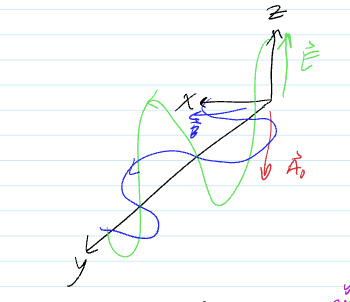 Z
E⃗
X
B⃗
A⃗₀
y